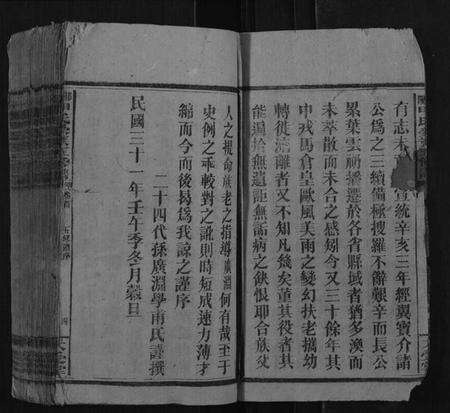 有志未 宣統辛亥三年經翼賓介諸
公為之三續備極搜羅不辭艱辛而長公
累葉雲礽播遷於各省縣域者猶多渙而
未萃散而未合之感矧今又三十餘年其
中戎馬倉皇歐風美雨之變幻扶老攜幼
轉徙流離者又不知凡幾矣董其役者其
能遍拾無遺詎無詬病之餘恨耶合族父
人之規命族老之指導廣淵何有哉至于
史例之乖較對之訛則時短成速力薄才
綿而今而後曷為我諒之謹序
二十四代孫廣淵學甫氏謹撰
民國三十一年壬午季冬月穀旦
五經譜序
四